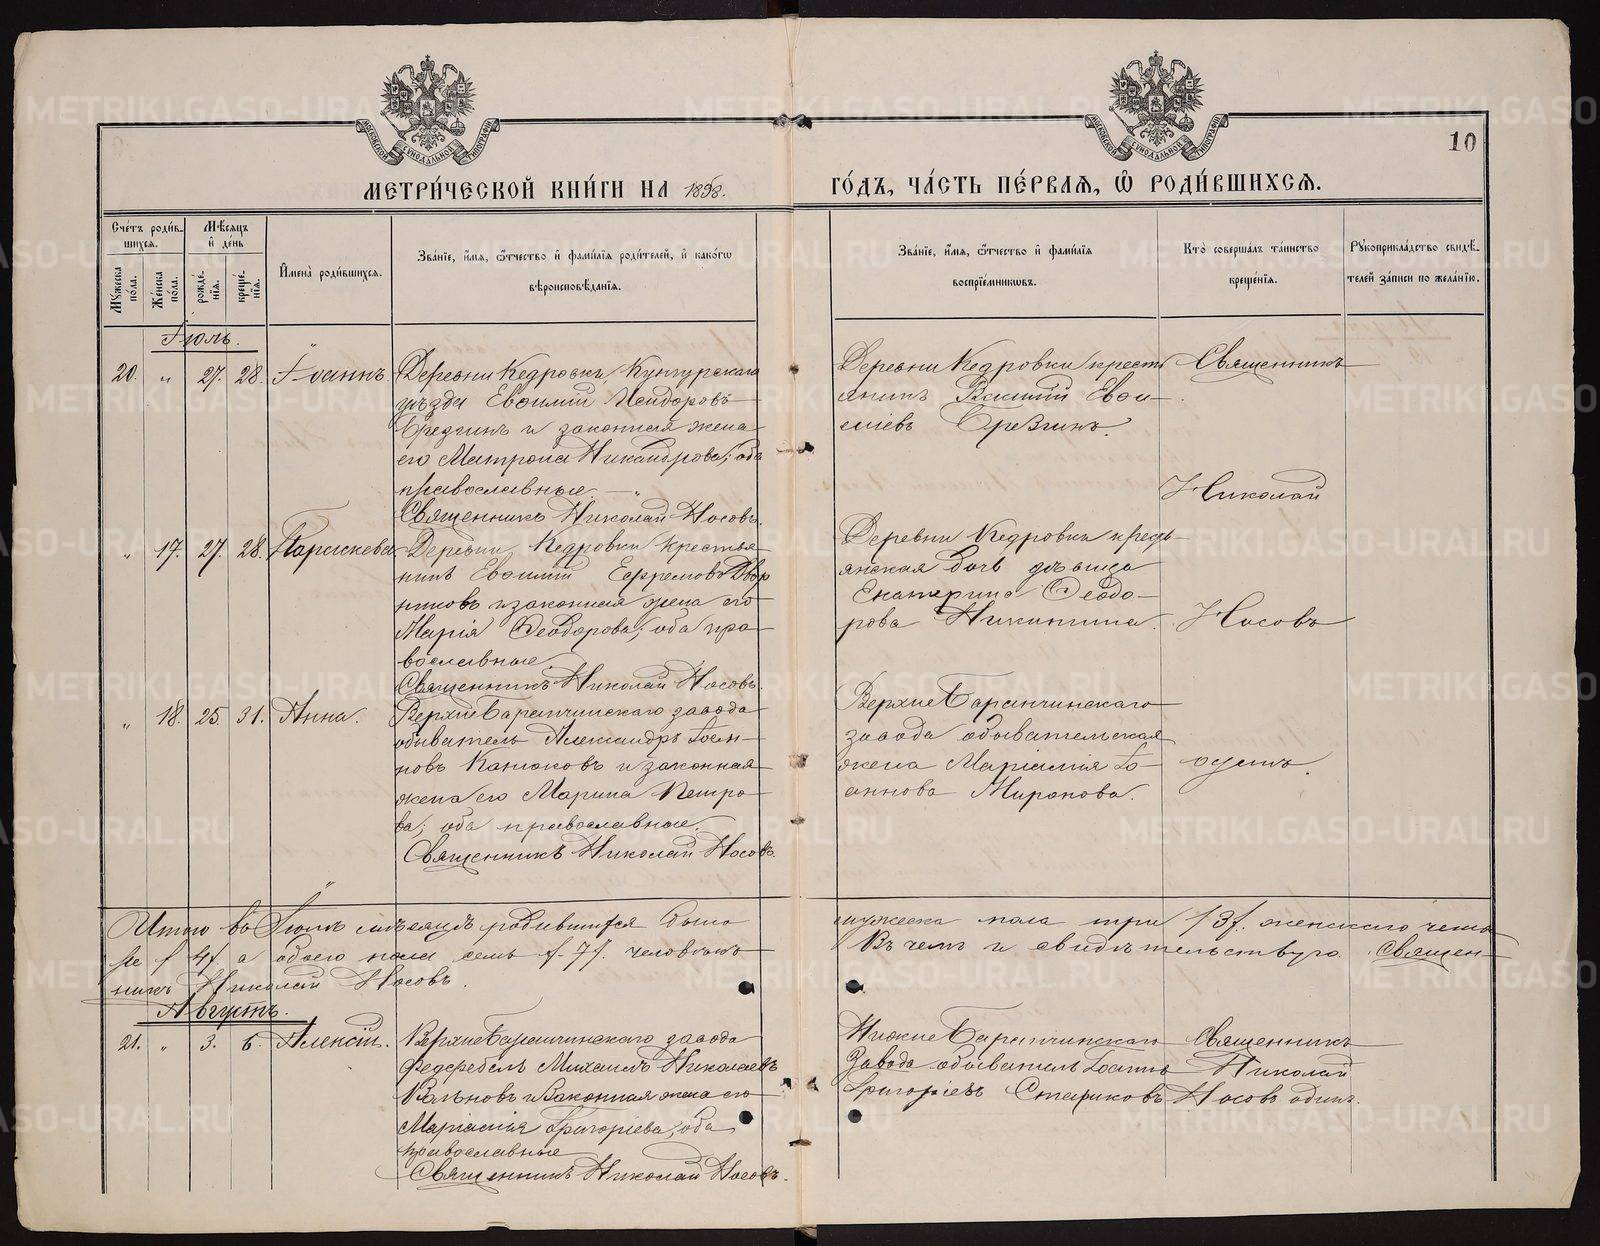 МЕТРИ́ЧЕСКОЙ КНИ́ГИ НА 1898.
ГО́ДЪ, ЧА́СТЬ ПЕ́РВАѦ, Ѡ҆ РОДИ́ВШИХСѦ.
10
Сче́тъ роди́в-
шихсѧ.
Мѣ́сѧцъ
и҆ де́нь
Мꙋ́жеска по́ла.
Же́нска по́ла.
рожде́-нїѧ.
креще́-нїѧ.
И҆мена̀ роди́вшихсѧ.
Зва́нїе, и҆́мѧ, ѻ҆́тчество и҆ фами́лїѧ роди́телей, и҆ како́гѡ
вѣроисповѣ́данїѧ.
Зва́нїе, и҆́мѧ, ѻ҆́тчество и҆ фами́лїѧ
воспрїе́мникѡвъ.
Кто̀ соверша́лъ та́инство
креще́нїѧ.
Рꙋкоприкла́дство свидѣ́-
телей за́писи по жела́нїю.
Іюль.
20. " 27. 28. Іоаннъ.
Деревни Кедровки, Кунгурскаго
уѣзда Евѳимій Исидоровъ
и законная жена
его Матрона Никандрова; оба
православные. — "
Священникъ Николай Носовъ.
Деревни Кедровки крестья
нинъ Василій Евѳи-
міевъ
Священникъ
Николай
Носовъ
одинъ.
" 17. 27. 28. Параскева
Деревни Кедровки крестья-
нинъ Евѳимій Ефремовъ Двор
никовъ и законная жена его
Марія Ѳеодорова; оба пра-
вославные.
Священникъ Николай Носовъ.
Деревни Кедровки кресть-
янская дочь дѣвица
Екатерина Ѳеодо-
рова Никитина.
" 18. 25. 31. Анна.
Верхне Баранчинскаго завода
обыватель Александръ Іоан-
новъ Канюковъ и законная
жена его Марина Петро-
ва; оба православные.
Священникъ Николай Носовъ.
Верхне Баранчинскаго
завода обывательская
жена Маріамія Іо-
аннова Миронова.
Итого въ Іюлѣ мѣсяцѣ родившихся было
мужеска пола три / 3 /. женскаго четы
ре / 4 /. а обоего пола семь /- 7 /. человѣкъ
Въ чемъ и свидѣтельствую. Священ-
никъ Николай Носовъ.
Августъ.
21. " 3. 6. Алексій.
Верхне Баранчинскаго завода
Фельдфебель Михаилъ Николаевъ
и законная жена его
Маріамія Григоріева; оба
православные
Священникъ Николай Носовъ.
Нижне Баранчинскаго
Завода обыватель Іоаннъ
Григорьевъ Стариковъ
Священникъ
Николай
Носовъ одинъ.
METRIKI.GASO-URAL.RU